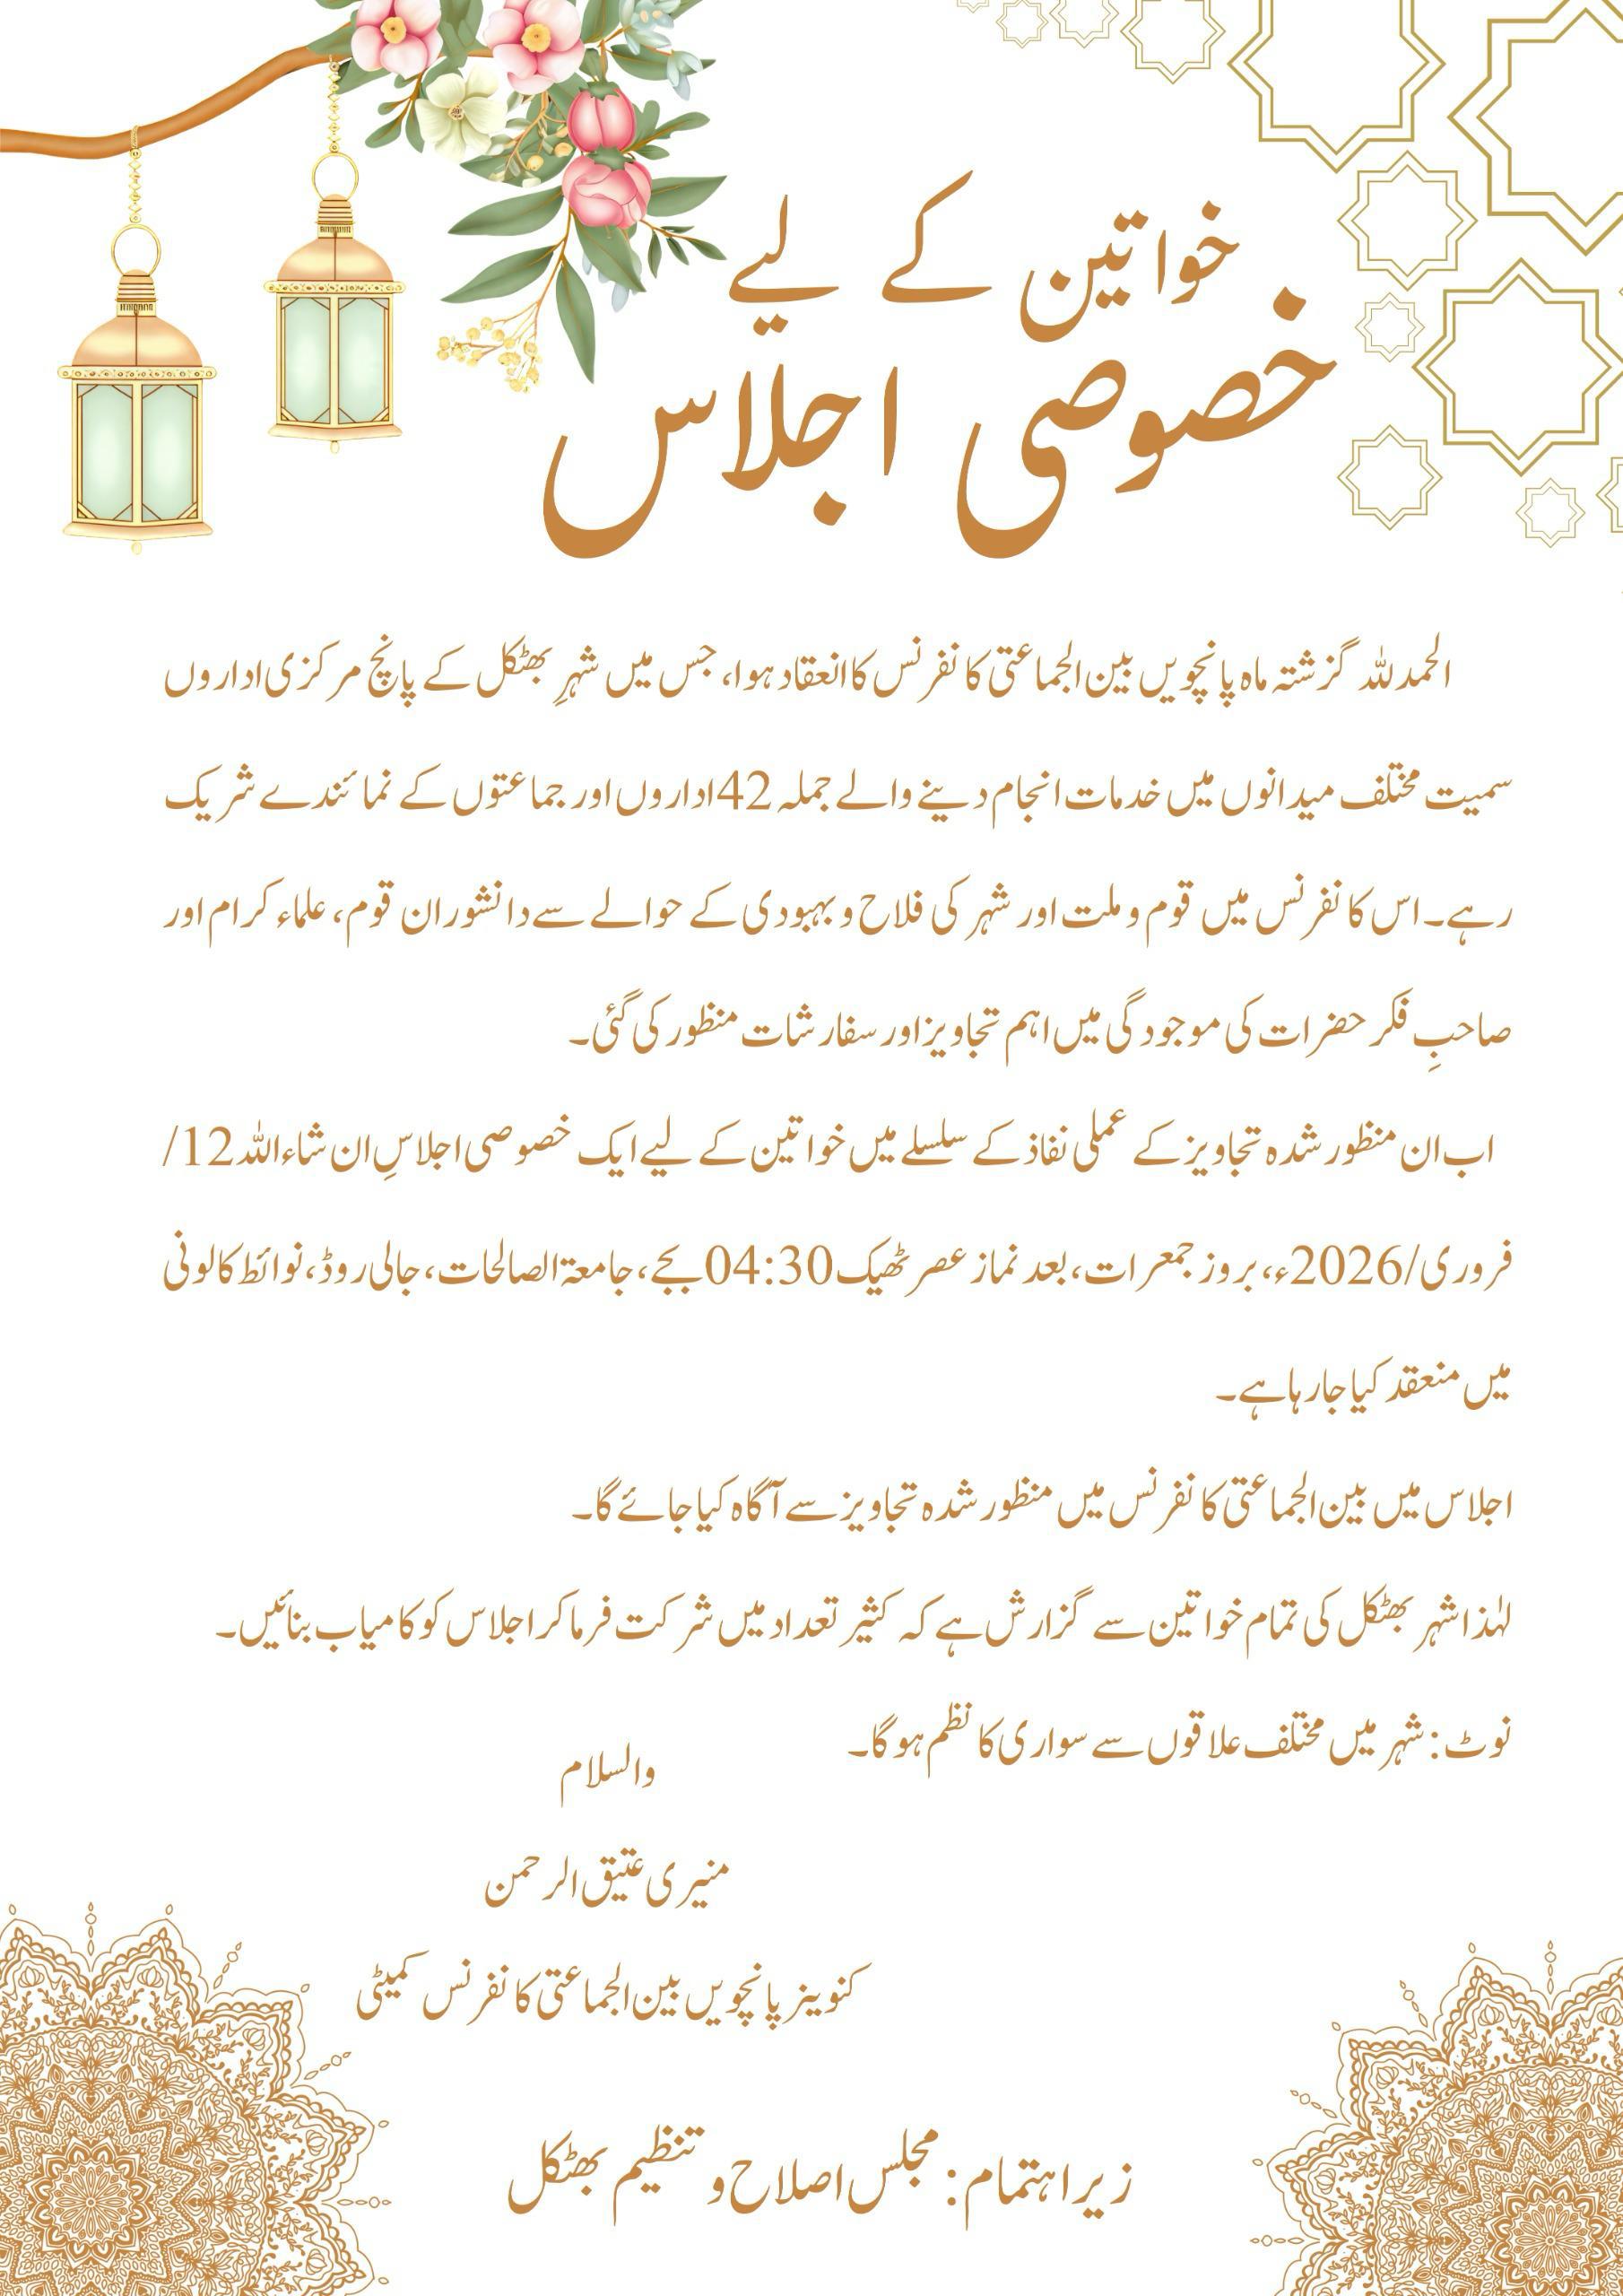 خواتین کے لیے
خصوصی اجلاس
الحمدللہ گزشتہ ماہ پانچویں بین الجماعتی کانفرنس کا انعقاد ہوا، جس میں شہرِ بھٹکل کے پانچ مرکزی اداروں
سمیت مختلف میدانوں میں خدمات انجام دینے والے جملہ 42 اداروں اور جماعتوں کے نمائندے شریک
رہے۔ اس کانفرنس میں قوم و ملت اور شہر کی فلاح و بہبودی کے حوالے سے دانشوران قوم، علماء کرام اور
صاحبِ فکر حضرات کی موجودگی میں اہم تجاویز اور سفارشات منظور کی گئی۔
اب ان منظور شدہ تجاویز کے عملی نفاذ کے سلسلے میں خواتین کے لیے ایک خصوصی اجلاسِ ان شاء اللہ 12/
فروری/2026ء، بروز جمعرات، بعد نماز عصر ٹھیک 04:30 بجے، جامعۃ الصالحات، جالی روڈ، نوائط کالونی
میں منعقد کیا جا رہا ہے۔
اجلاس میں بین الجماعتی کانفرنس میں منظور شدہ تجاویز سے آگاہ کیا جائے گا۔
لہٰذا شہر بھٹکل کی تمام خواتین سے گزارش ہے کہ کثیر تعداد میں شرکت فرما کر اجلاس کو کامیاب بنائیں۔
نوٹ: شہر میں مختلف علاقوں سے سواری کا نظم ہو گا۔
والسلام
منیری عتیق الرحمن
کنوینر پانچویں بین الجماعتی کانفرنس کمیٹی
زیر اہتمام: مجلس اصلاح و تنظیم بھٹکل